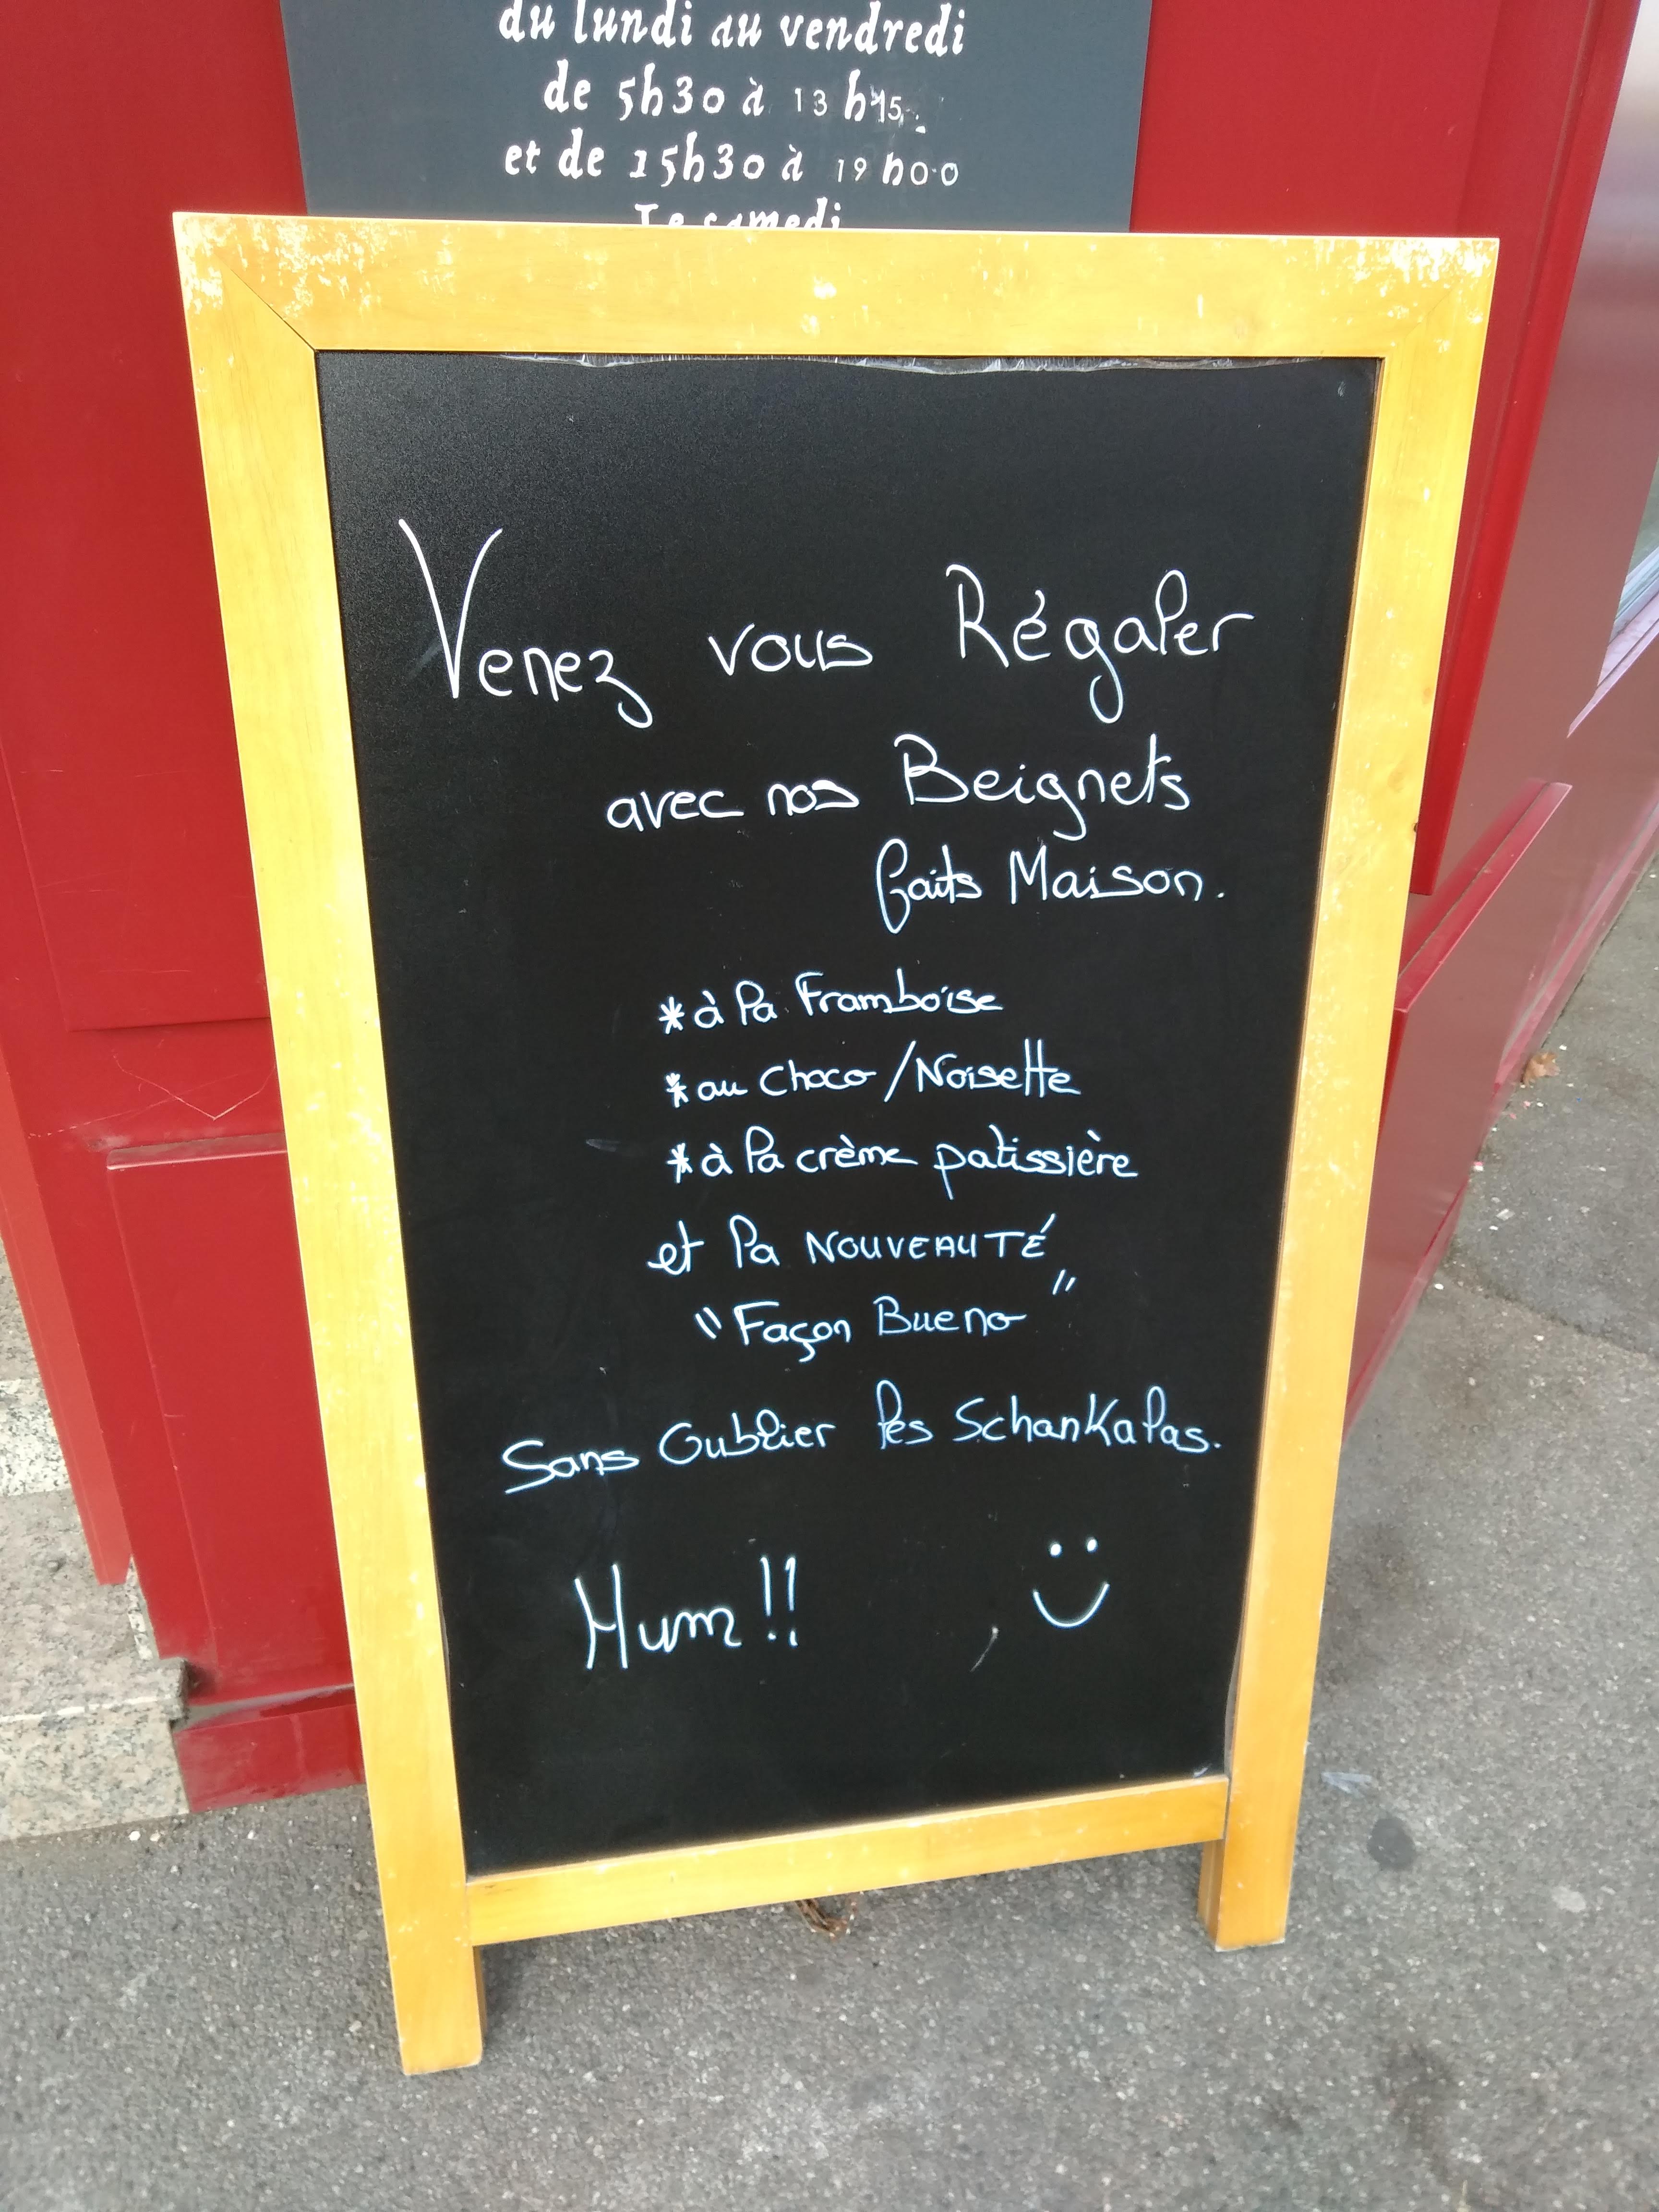 du lundi au vendredi
de 5h30 à 13 h15
et de 15h30 à 19 h00
Le samedi
Venez vous Régaler
avec nos Beignets
faits Maison.
*à la Framboise
*au Choco/Noisette
*à la crème patissière
et la NOUVEAUTÉ
"Façon Bueno"
Sans Oublier les SchanKalas.
Hum!!